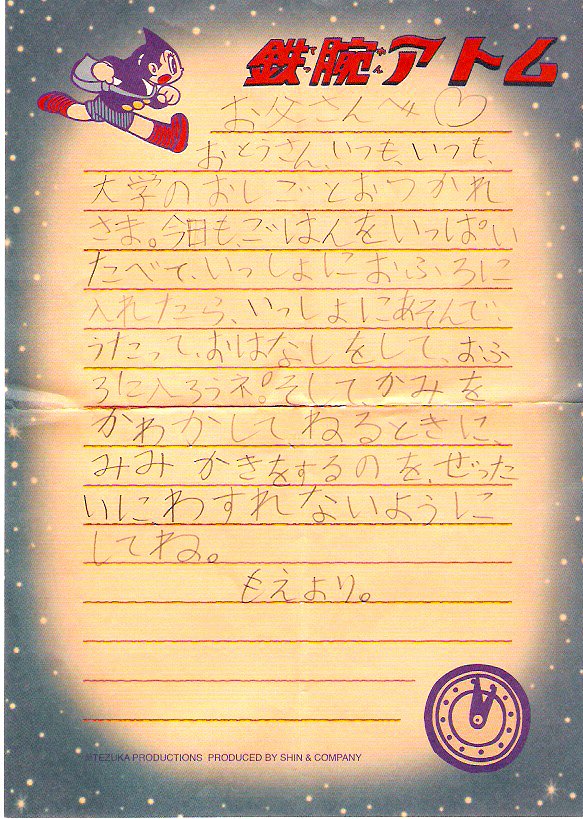 鉄腕アトム
てつ わん
お父さんへ♡
おとうさん、いつも、いつも、
大学のおしごとおつかれ
さま。今日も、ごはんをいっぱい
たべて、いっしょにおふろに
入れたら、いっしょにあそんで、
うたって、おはなしをして、おふ
ろに入ろうネ。そして、かみを
かわかして、ねるときに、
みみかきをするのを、ぜった
いにわすれないように
してね。
もえより。
©TEZUKA PRODUCTIONS PRODUCED BY SHIN & COMPANY